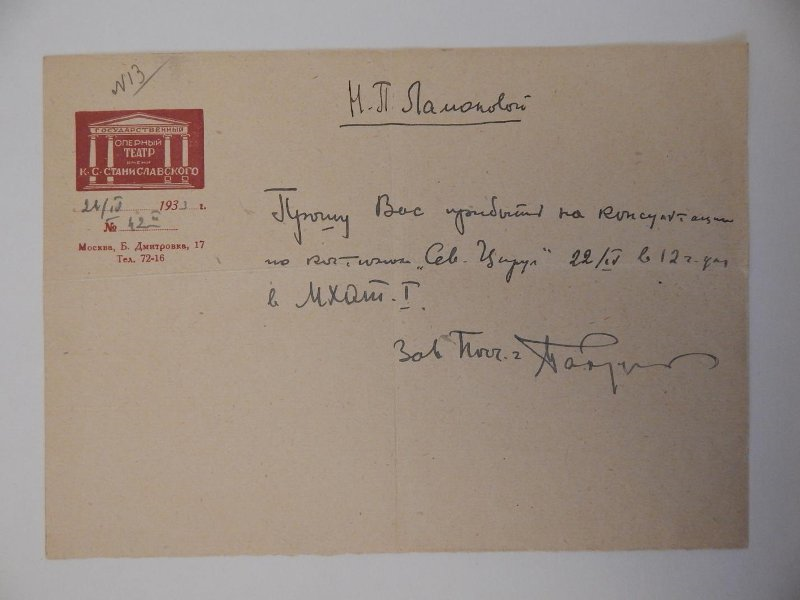 N13
Н.П. Ламановой
ГОСУДАРСТВЕННЫЙ
ОПЕРНЫЙ
ТЕАТР
ИМЕНИ
К·С·СТАНИСЛАВСКОГО
21/IV 1933 г.
№
Москва, Б. Дмитровка, 17
Тел. 72-16
Прошу Вас прибыть на консультацию
по костюмам „Сев. Цирул" 22/IV в 12 ч. дня
в МХАТ. I.
Зав Пост. ч